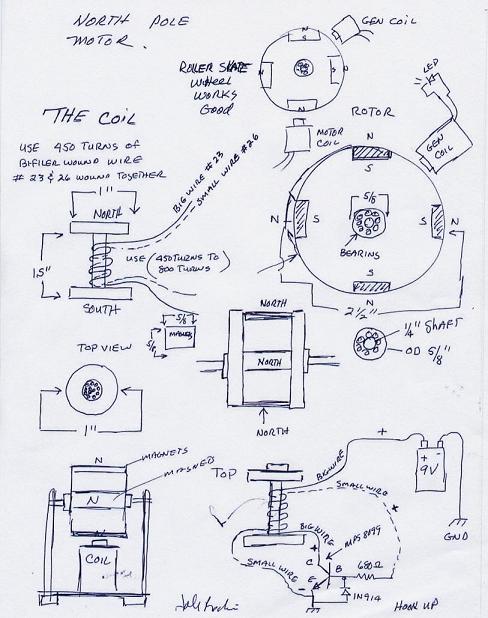 NORTH POLE
MOTOR.
GEN COIL
N
S
S
N
ROLLER SKATE
WHEEL
WORKS
GOOD
LED
THE COIL
ROTOR
MOTOR
COIL
GEN
COIL
USE 450 TURNS OF
BIFILER WOUND WIRE
# 23 & 26 WOUND TOGETHER
BIG WIRE # 23
SMALL WIRE # 26
1"
NORTH
1.5"
SOUTH
USE (450 TURNS TO
800 TURNS)
N
S
N
S
5/8
S
N
BEARING
S
N
2 1/2"
5/8
5/8
MAGNET
NORTH
NORTH
NORTH
1/4" SHAFT
OD 5/8"
TOP VIEW
1"
N
N
MAGNETS
MAGNETS
COIL
TOP
BIG WIRE
SMALL WIRE
+
+
+ -
9V
GND
BIG WIRE
SMALL WIRE
+
-
C
B
E
MPS8099
680Ω
1N914
HOOK UP